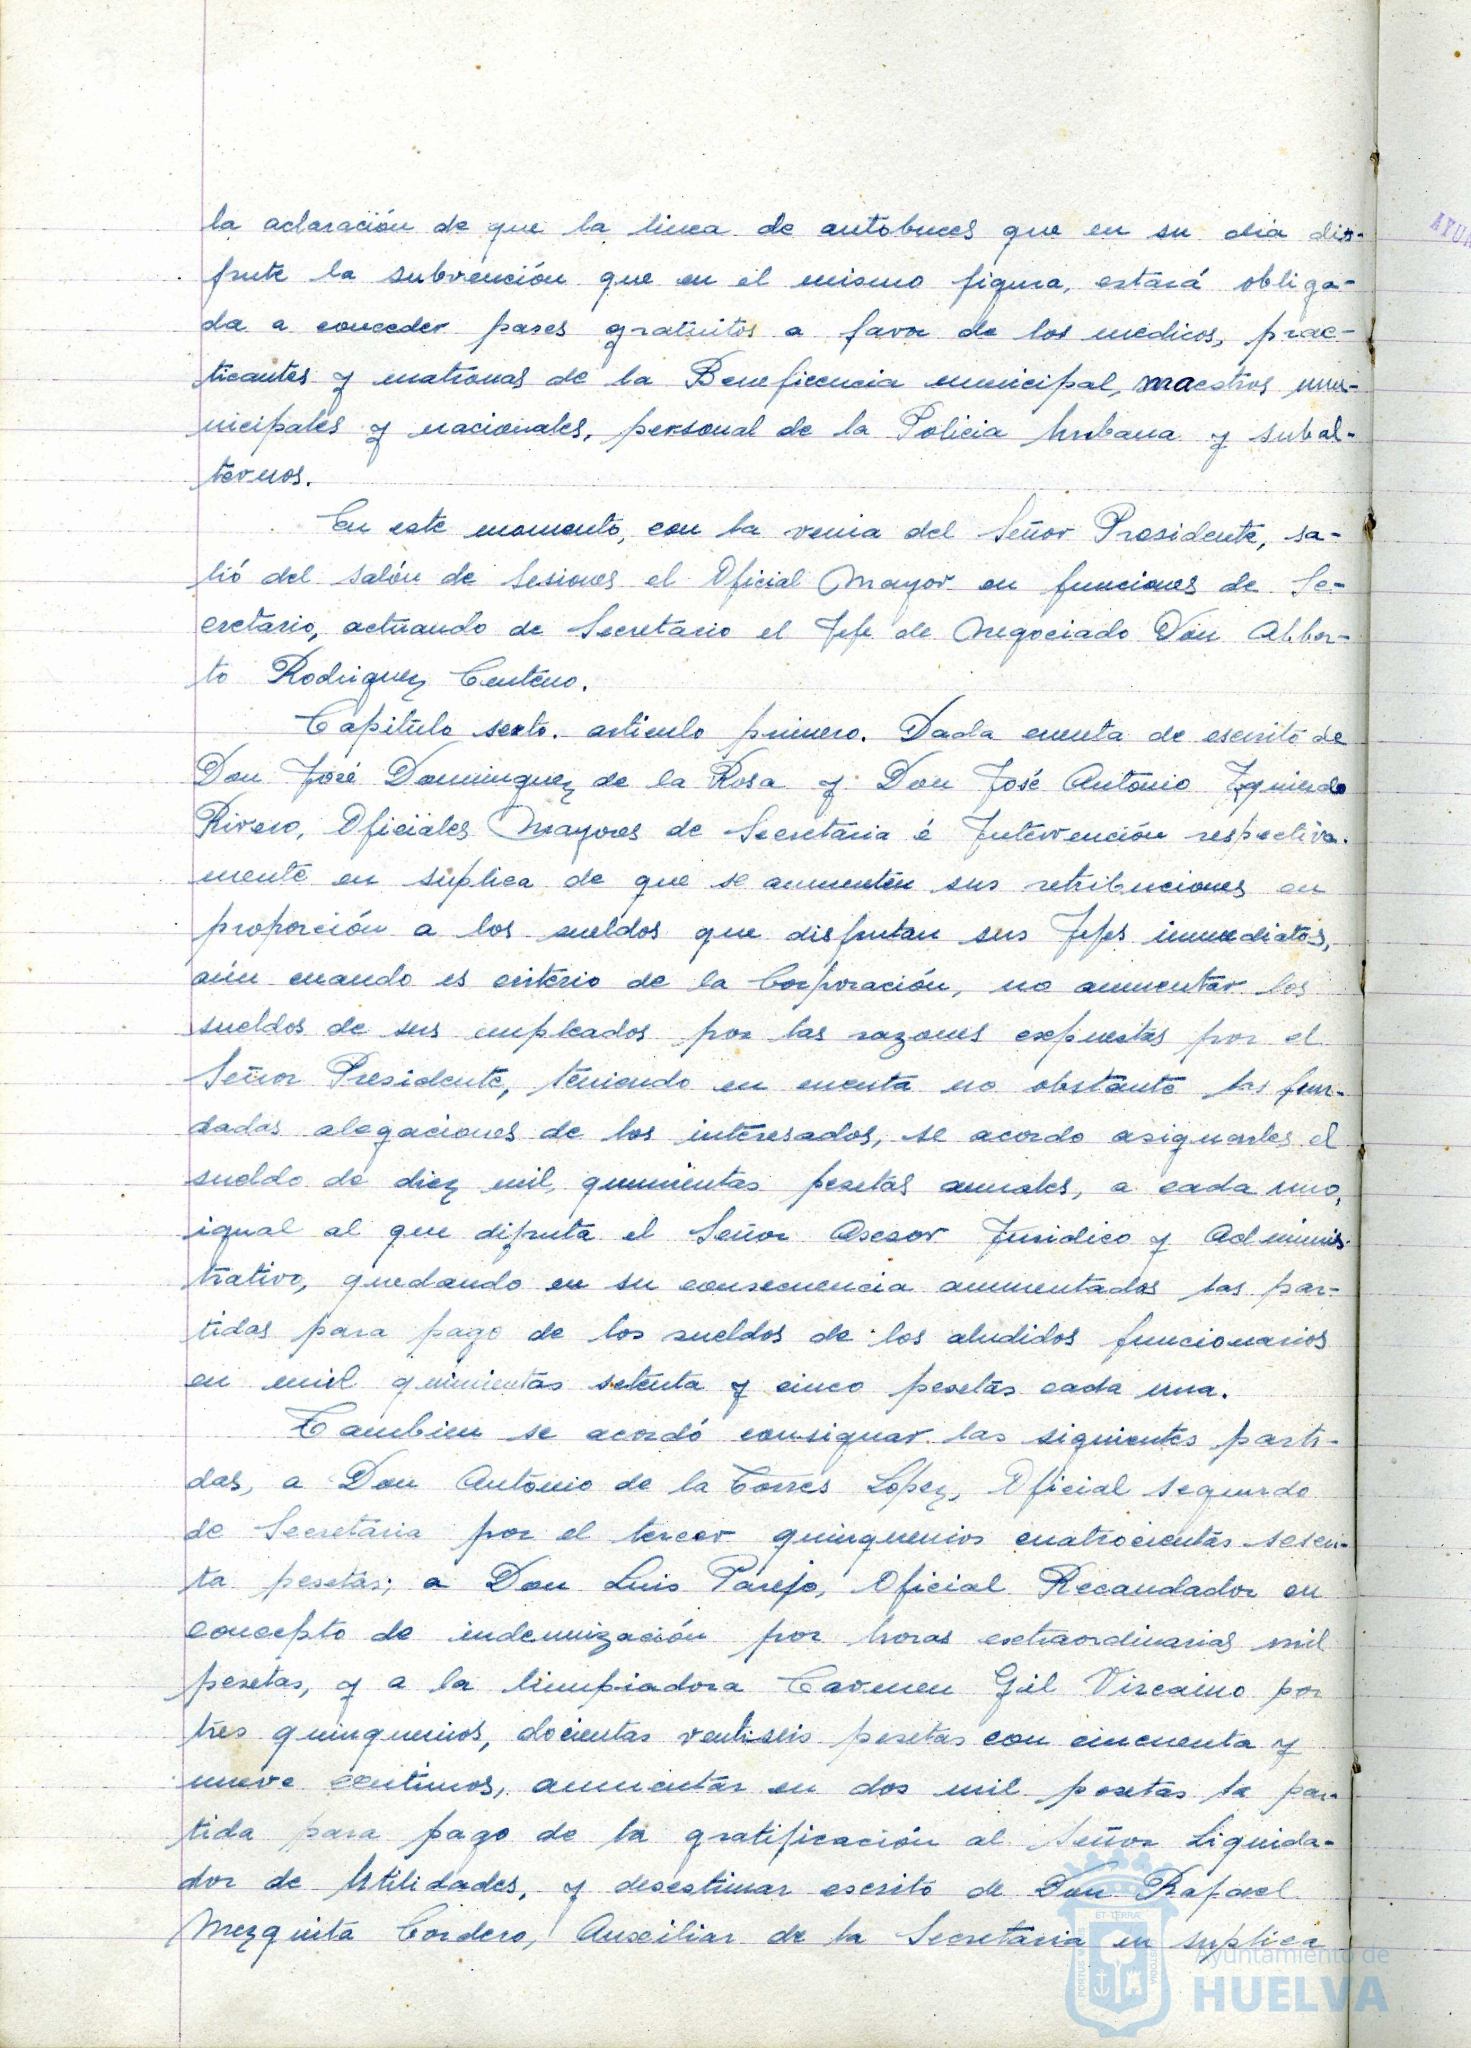 la aclaración de que la linea de autobuces que en su dia dis-
frute la subvención que en el mismo figura, estará obliga-
da a conceder pases gratuitos a favor de los medicos, prac-
ticantes y matronas de la Beneficencia municipal, maestros mu-
nicipales y nacionales, personal de la Policia Urbana y subal-
ternos.
En este momento, con la venia del Señor Presidente, sa-
lió del salón de Sesiones el Oficial Mayor en funciones de Se-
cretario, actuando de Secretario el Jefe de Negociado Don Alber-
to Rodriguez Centeno.
Capitulo sexto. articulo primero. Dada cuenta de escrito de
Don José Dominguez de la Rosa y Don José Antonio Izquierdo
Rivero, Oficiales Mayores de Secretaria é Intervención respectiva-
mente en suplica de que se aumenten sus retribuciones en
proporción a los sueldos que disfrutan sus Jefes inmediatos,
aún cuando es criterio de la Corporación, no aumentar los
sueldos de sus empleados por las razones expuestas por el
Señor Presidente, teniendo en cuenta no obstante las fun-
dadas alegaciones de los interesados, se acordo asignarles el
sueldo de diez mil quinientas pesetas anuales, a cada uno,
igual al que difruta el Señor Asesor Juridico y Adminis-
trativo, quedando en su consecuencia aumentados las par-
tidas para pago de los sueldos de los aludidos funcionarios
en mil quinientas setenta y cinco pesetas cada una.
Tambien se acordó consignar las siguientes parti-
das, a Don Antonio de la Torres López, Oficial segundo
de Secretaria por el tercer quinquenios cuatrocientas sesen-
ta pesetas; a Don Luis Parejo, Oficial Recaudador en
concepto de indemnización por horas extraordinarias mil
pesetas, y a la limpiadora Carmen Gil Vizcaino por
tres quinquenios, docientas ventiseis pesetas con cincuenta y
nueve centimos, aumentar en dos mil pesetas la par-
tida para pago de la gratificación al Señor Liquida-
dor de Utilidades, y desestimar escrito de Don Rafael
Mezquita Cordero, Auxiliar de la Secretaria en suplica
AYU
ET TERRÆ
PORTUS MARIS
CUSTODIA
Ayuntamiento de
HUELVA